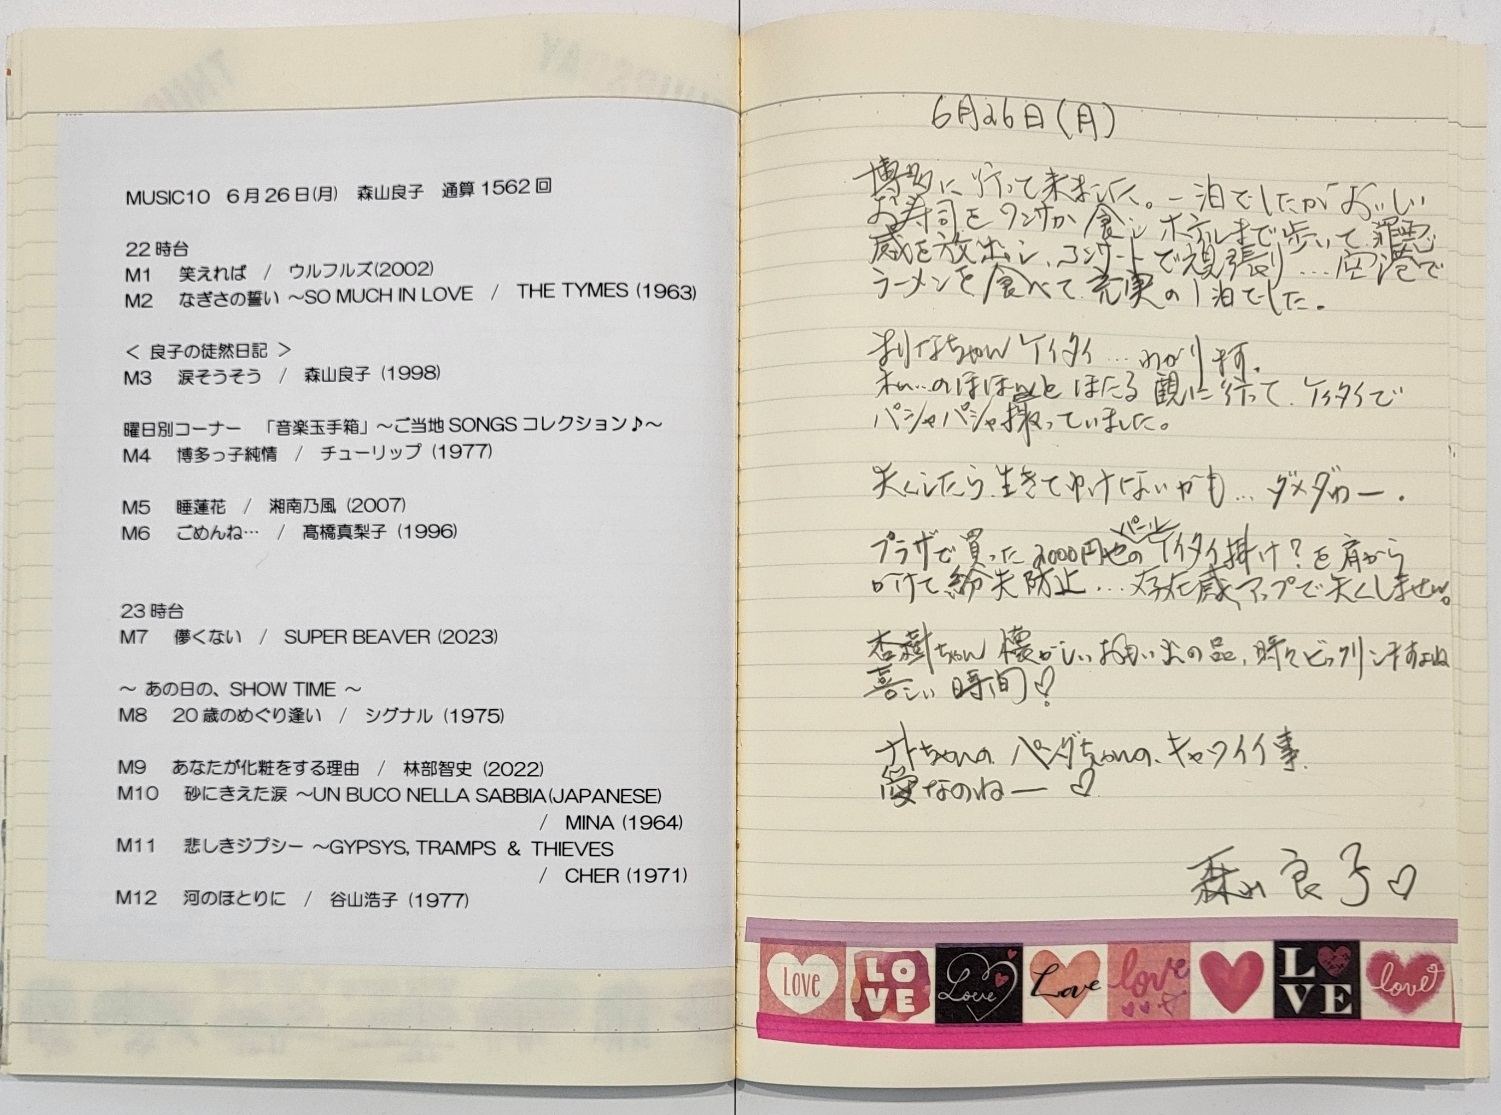 MUSIC10 6月26日(月) 森山良子 通算1562回
22時台
M1 笑えれば / ウルフルズ(2002)
M2 なぎさの誓い ～SO MUCH IN LOVE / THE TYMES (1963)
＜ 良子の徒然日記 ＞
M3 涙そうそう / 森山良子 (1998)
曜日別コーナー 「音楽玉手箱」～ご当地SONGSコレクション♪～
M4 博多っ子純情 / チューリップ (1977)
M5 睡蓮花 / 湘南乃風 (2007)
M6 ごめんね… / 髙橋真梨子 (1996)
23時台
M7 儚くない / SUPER BEAVER (2023)
～ あの日の、SHOW TIME ～
M8 20歳のめぐり逢い / シグナル (1975)
M9 あなたが化粧をする理由 / 林部智史 (2022)
M10 砂にきえた涙 ～UN BUCO NELLA SABBIA(JAPANESE)
/ MINA (1964)
M11 悲しきジプシー ～GYPSYS, TRAMPS & THIEVES
/ CHER (1971)
M12 河のほとりに / 谷山浩子 (1977)
6月26日(月)
博多に行って来ました。一泊でしたがおいしい
お寿司をワンサカ食し ホテルまで歩いて 罪悪
感を放出し、コンサートで頑張り…空港で
ラーメンを食べて 充実の1泊でした。
まりなちゃん ケイタイ…わかります。
私…のほほんと ほたる 観に行って、ケイタイで
パシャパシャ撮っていました。
失くしたら 生きてゆけないかも… ダメダわー。
プラザで買った 2000円也のパールケイタイ掛け？を肩から
かけて 紛失防止…存在感アップで失くしません。
杏樹ちゃん 懐かしいお思い出の品、時々ビックリしますよね
喜しい時間♡
ちゃんの パンダちゃんの、キャワイイ事
愛なのねー♡
森山良子♡
Love
LO
VE
Love
Love
love
L
VE
love